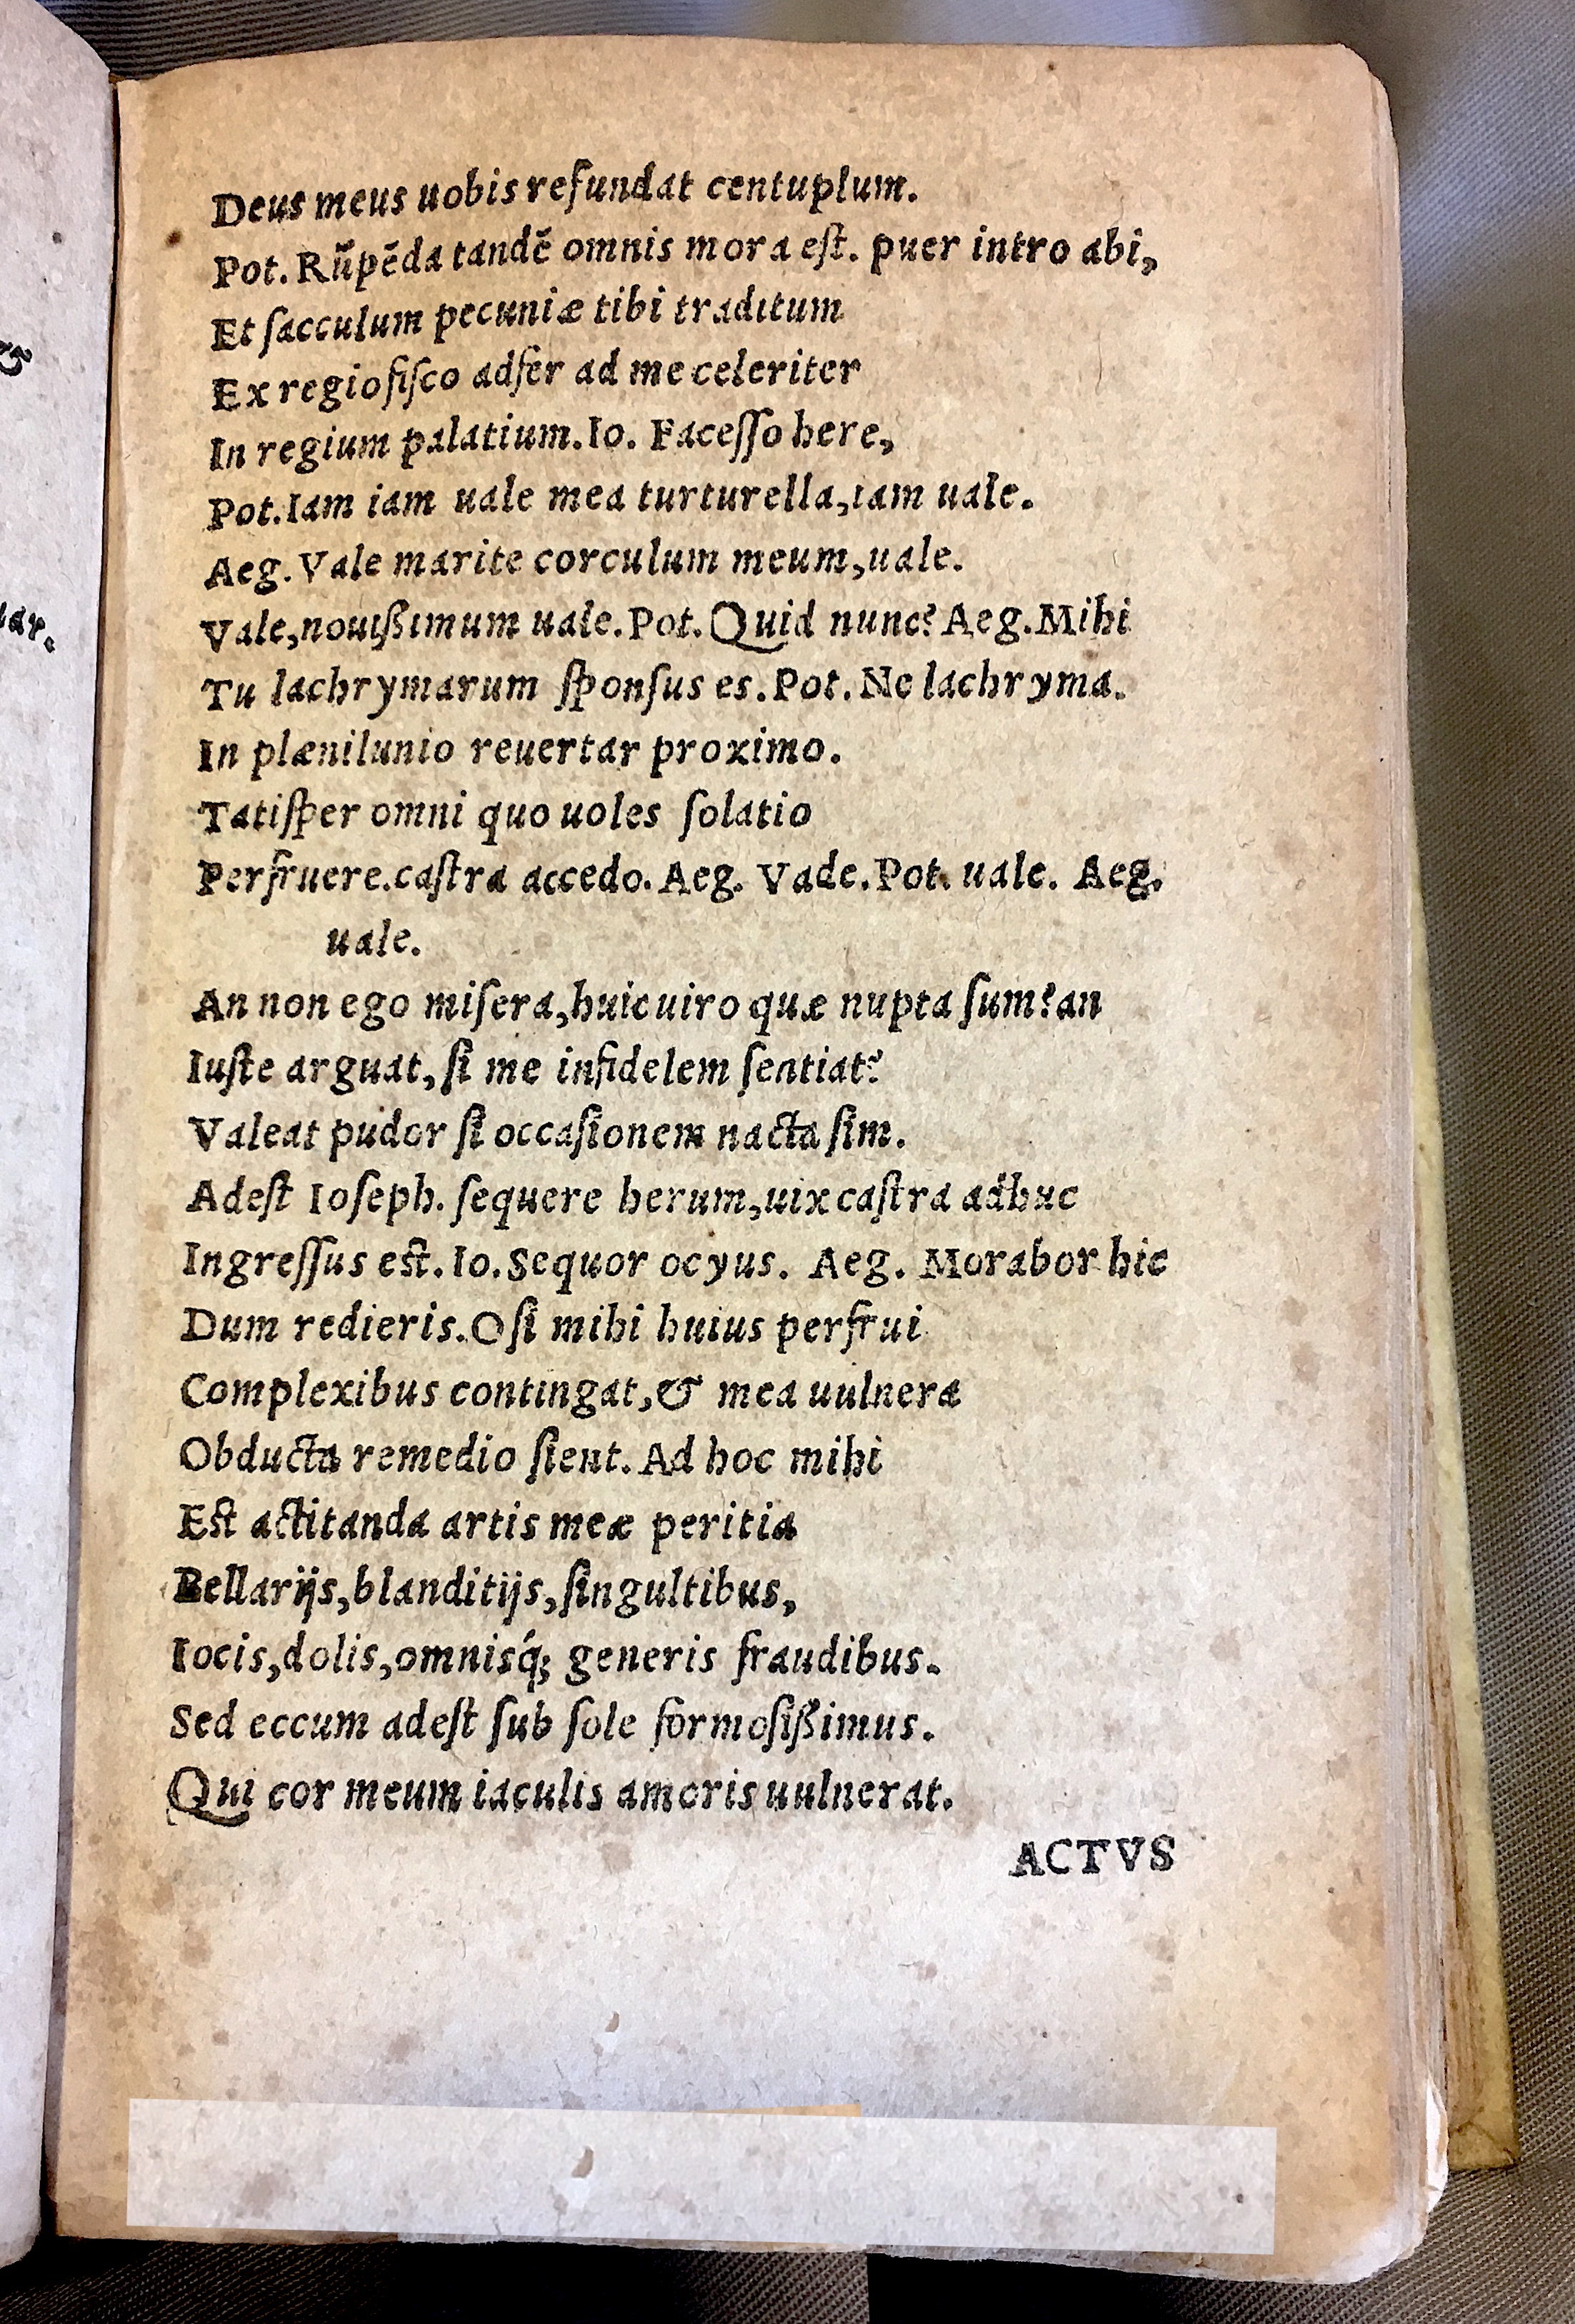 Deus meus uobis refundat centuplum.
Pot. Rũpẽda tandẽ omnis mora eſt. puer intro abi,
Et ſacculum pecuniæ tibi traditum
Ex regio fiſco adfer ad me celeriter
In regium palatium. Io. Faceſſo here,
Pot. Iam iam uale mea turturella, iam uale.
Aeg. Vale marite corculum meum, uale.
Vale, nouißimum uale. Pot. Quid nunc? Aeg. Mihi
Tu lachrymarum ſponſus es. Pot. Ne lachryma.
In plænilunio reuertar proximo.
Tatiſper omni quo uoles ſolatio
Perfruere. caſtra accedo. Aeg. Vade. Pot. uale. Aeg.
uale.
An non ego miſera, huic uiro quæ nupta ſum? an
Iuſte arguat, ſi me infidelem ſentiat?
Valeat pudor ſi occaſionem nacta ſim.
Adeſt Ioſeph. ſequere herum, uix caſtra adhuc
Ingreſſus eſt. Io. Sequor ocyus. Aeg. Morabor hic
Dum redieris. O ſi mihi huius perfrui
Complexibus contingat, & mea uulnera
Obducta remedio ſient. Ad hoc mihi
Eſt actitanda artis meæ peritia
Bellarijs, blanditijs, ſingultibus,
Iocis, dolis, omnisq́; generis fraudibus.
Sed eccum adeſt ſub ſole formoſißimus.
Qui cor meum iaculis amoris uulnerat.
ACTVS